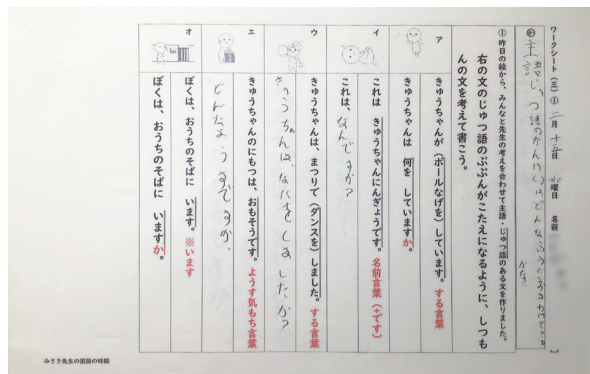 ワークシート（三）① 二月 十三日 水曜日 名前
め 主語じゅつ語のかんけいは、どんなふうになるかな？
①昨日の絵から、みんなと先生の考えを合わせて主語・じゅつ語のある文を作りました。
右の文のじゅつ語のぶぶんがこたえになるように、しつもんの文を考えて書こう。
ア
きゅうちゃんが（ボールなげを）しています。する言葉
きゅうちゃんは 何を していますか。
イ
これは きゅうちゃんにんぎょうです。名前言葉（＋です）
これは、なんですか？
ウ
きゅうちゃんは、まつりで（ダンスを）しました。する言葉
きゅうちゃんは、なにをしましたか？
エ
きゅうちゃんのにもつは、おもそうです。ようす気もち言葉
どんなようすですか。
オ
ぼくは、おうちのそばに います。※います
ぼくは、おうちのそばに いますか。
みさき先生の国語の時間